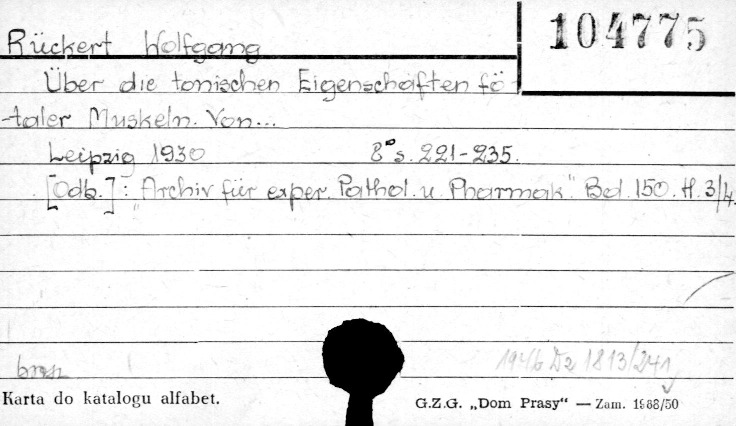 104775
Rückert Wolfgang
Über die tonischen Eigenschaften fö-
-taler Muskeln. Von...
Leipzig 1930 8° s. 221-235.
[Odb.]: „Archiv für exper. Pathol. u. Pharmak." Bd. 150. H. 3/4.
brosz
1946 Dz 1813/241
Karta do katalogu alfabet.
G.Z.G. „Dom Prasy“ — Zam. 1988/50